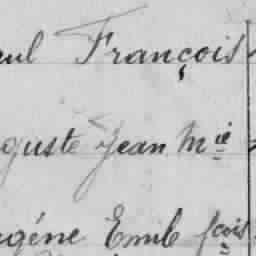 aul François
guste Jean Mie
gène Emile fçois